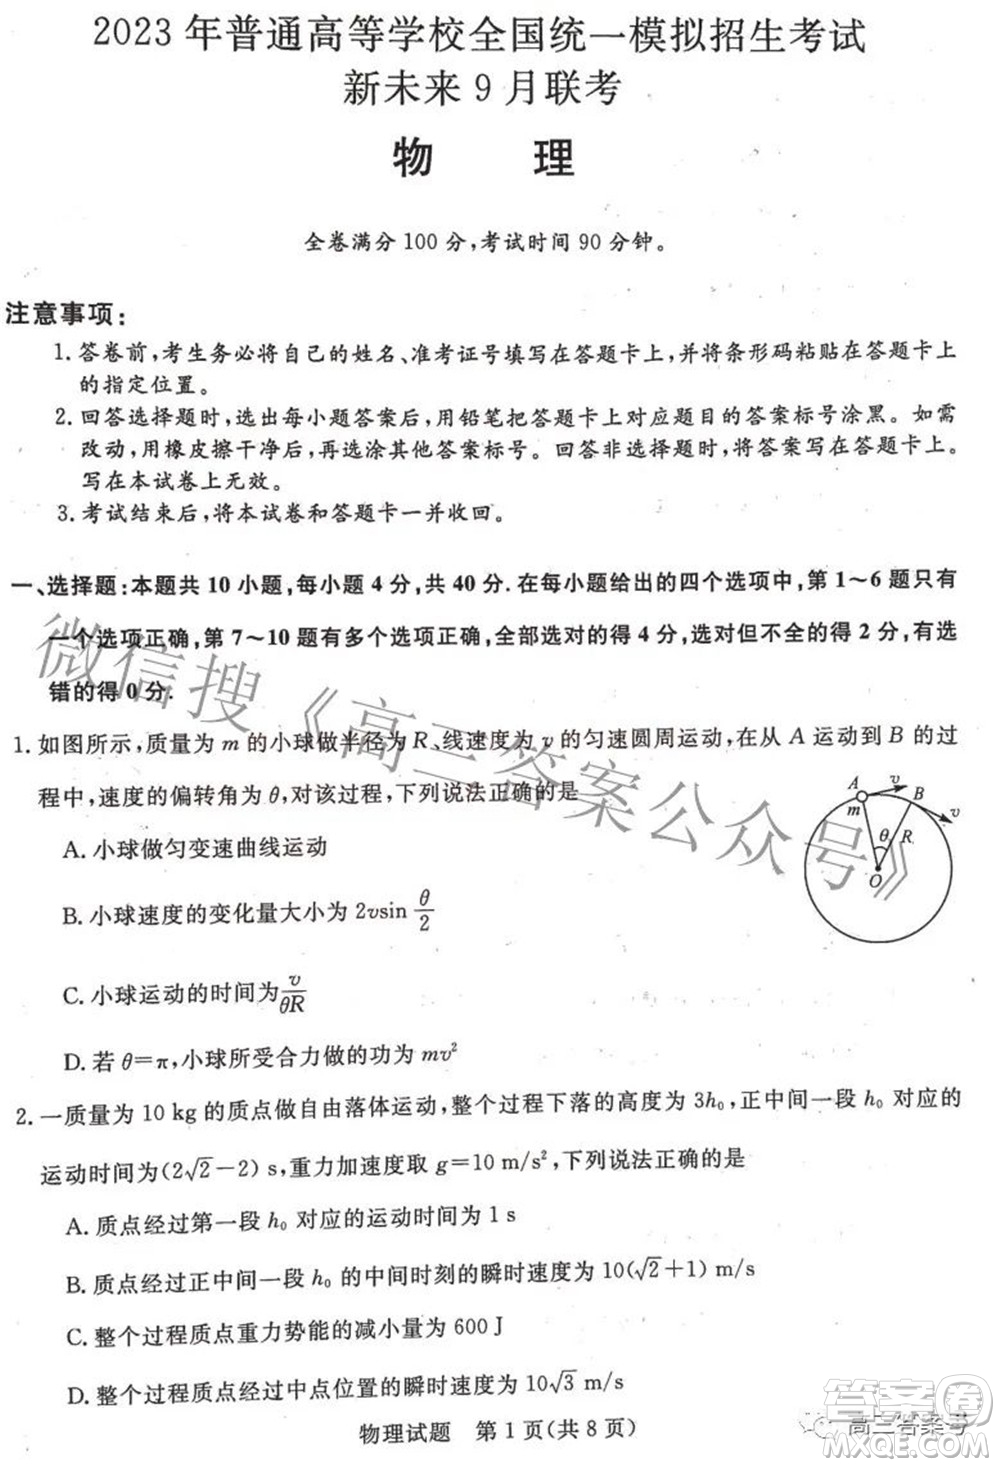 2023年普通高等学校全国统一模拟招生考试
新未来9月联考
物 理
全卷满分100分,考试时间90分钟。
注意事项:
1.答卷前,考生务必将自己的姓名、准考证号填写在答题卡上,并将条形码粘贴在答题卡上
的指定位置。
2.回答选择题时,选出每小题答案后,用铅笔把答题卡上对应题目的答案标号涂黑。如需
改动,用橡皮擦干净后,再选涂其他答案标号。回答非选择题时,将答案写在答题卡上。
写在本试卷上无效。
3.考试结束后,将本试卷和答题卡一并收回。
一、选择题:本题共10小题,每小题4分,共40分.在每小题给出的四个选项中,第1~6题只有
一个选项正确,第7~10题有多个选项正确,全部选对的得4分,选对但不全的得2分,有选
错的得0分.
1.如图所示,质量为m的小球做半径为R、线速度为v的匀速圆周运动,在从A运动到B的过
程中,速度的偏转角为θ,对该过程,下列说法正确的是
A.小球做匀变速曲线运动
B.小球速度的变化量大小为2vsin θ/2
C.小球运动的时间为 v/θR
D.若θ=π,小球所受合力做的功为mv²
A v B
m v
θ R
O
2.一质量为10 kg的质点做自由落体运动,整个过程下落的高度为3h₀,正中间一段h₀对应的
运动时间为(2√2-2) s,重力加速度取g=10 m/s²,下列说法正确的是
A.质点经过第一段h₀对应的运动时间为1 s
B.质点经过正中间一段h₀的中间时刻的瞬时速度为10(√2+1) m/s
C.整个过程质点重力势能的减小量为600 J
D.整个过程质点经过中点位置的瞬时速度为10√3 m/s
物理试题 第1页(共8页)
微信搜《高三答案公众号》
高三答案号
答案圈
MXQE.COM